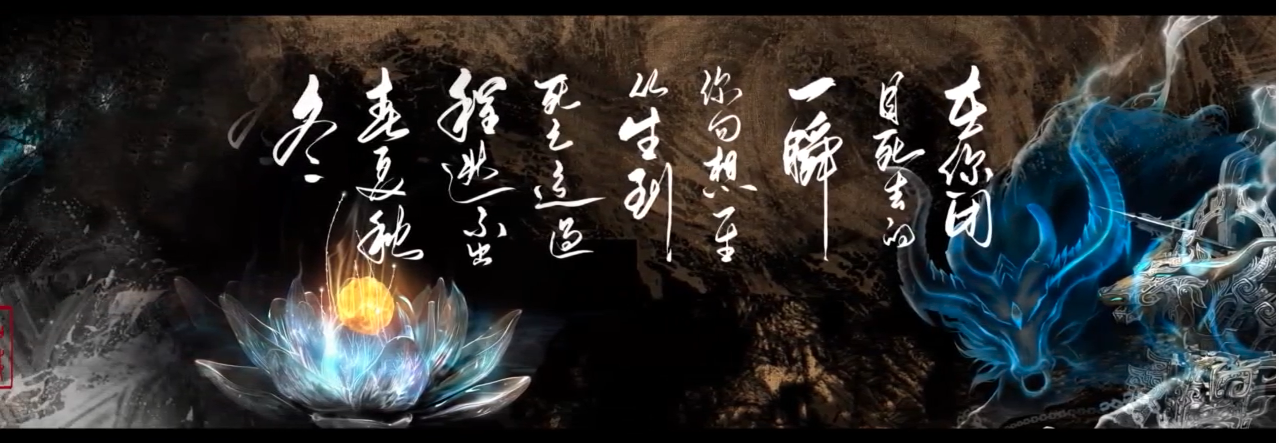 在你闭
目死去的
一瞬
你回想一生
从生到
死亡这过
程逃不出
春夏秋
冬